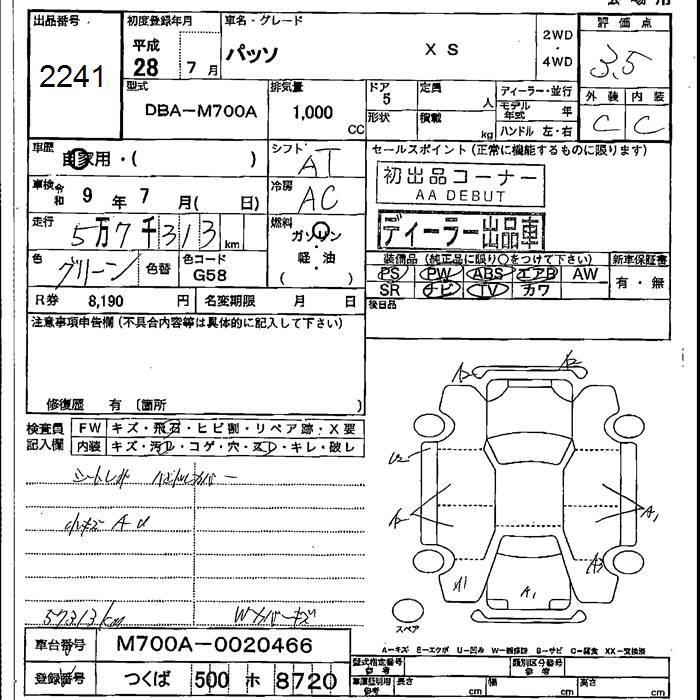 出品番号
2241
初度登録年月
平成
28 7 月
車名・グレード
パッソ X S
2WD
・
4WD
評価点
3.5
外装 内装
C C
型式
DBA-M700A
排気量
1,000
CC
ドア
5
形状
定員
人
積載
kg
ディーラー・並行
モデル年式 年
ハンドル 左・右
車歴
自家用・( )
シフト
AT
セールスポイント(正常に機能するものに限ります)
初出品コーナー
AA DEBUT
ディーラー出品車
車検 令和 9 年 7 月( 日)
冷房
AC
走行
5万7千313 km
燃料
ガソリン
・
軽・油
( )
色
グリーン
色替
色コード
G58
装備品(純正品に限り○をつけて下さい)
新車保証書
PS PW ABS エアB AW
SR ナビ TV カワ
有・無
後日品
R券 8,190 円
名変期限 月 日
注意事項申告欄(不具合内容等は具体的に記入して下さい)
修復歴 有 〔箇所 〕
検査員
記入欄
FW キズ・飛石・ヒビ割・リペア跡・X要
内装 キズ・汚レ・コゲ・穴・スレ・キレ・破レ
A2 A2
U2
A2
A1
A1
A1
A3
スペア
57313km
車台番号
M700A-0020466
登録番号
つくば 500 ホ 8720
A-キズ E-エクボ U-凹み W-補修跡 B-サビ C-腐食 XX-交換済
型式指定番号
参考
類別区分番号
参考
車庫証明用
参考
長さ cm
幅 cm
高さ cm